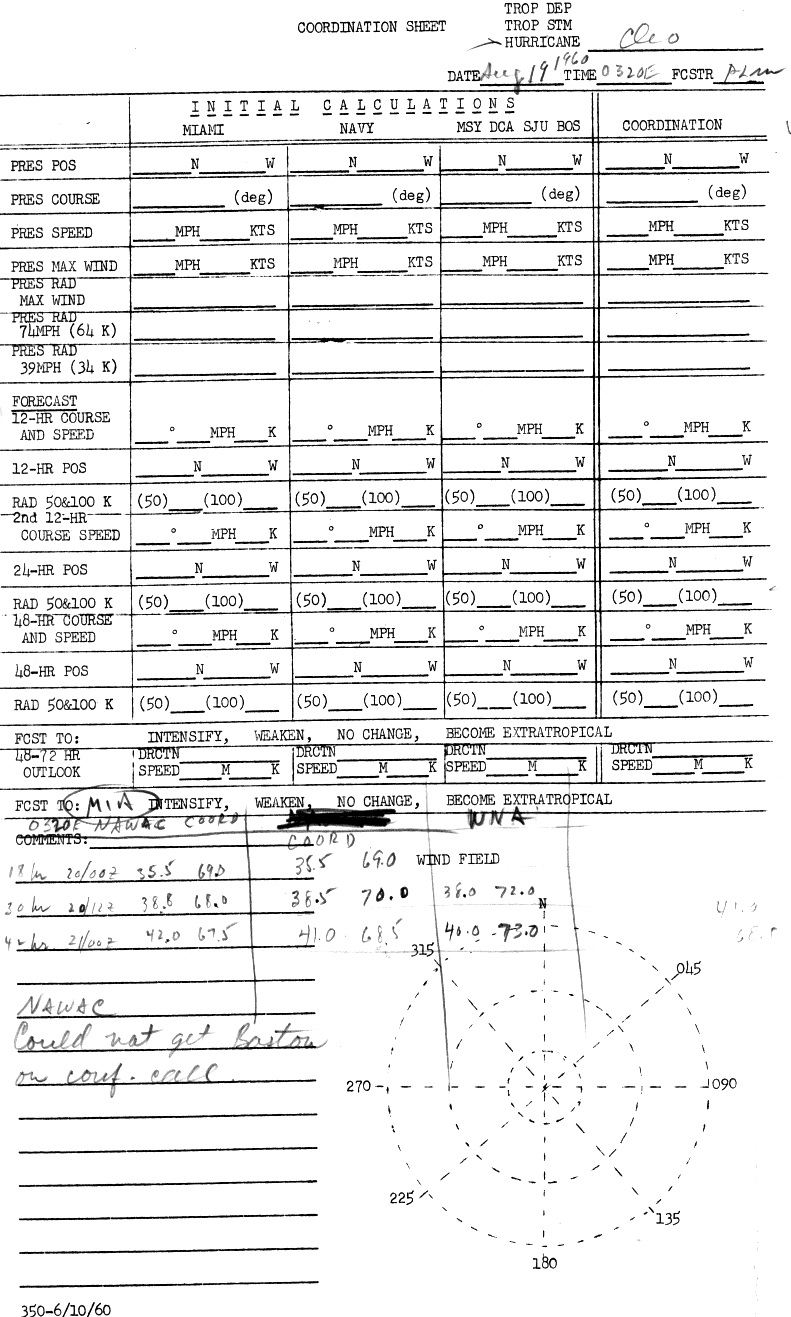 TROP DEP
COORDINATION SHEET TROP STM
HURRICANE Cleo
DATE Aug 19 1960 TIME 0320E FCSTR
INITIAL CALCULATIONS
MIAMI NAVY MSY DCA SJU BOS COORDINATION
PRES POS N W N W N W N W
PRES COURSE (deg) (deg) (deg) (deg)
PRES SPEED MPH KTS MPH KTS MPH KTS MPH KTS
PRES MAX WIND MPH KTS MPH KTS MPH KTS MPH KTS
PRES RAD
MAX WIND
PRES RAD
74MPH (64 K)
PRES RAD
39MPH (34 K)
FORECAST
12-HR COURSE
AND SPEED ° MPH K ° MPH K ° MPH K ° MPH K
12-HR POS N W N W N W N W
RAD 50&100 K (50) (100) (50) (100) (50) (100) (50) (100)
2nd 12-HR
COURSE SPEED ° MPH K ° MPH K ° MPH K ° MPH K
24-HR POS N W N W N W N W
RAD 50&100 K (50) (100) (50) (100) (50) (100) (50) (100)
48-HR COURSE
AND SPEED ° MPH K ° MPH K ° MPH K ° MPH K
48-HR POS N W N W N W N W
RAD 50&100 K (50) (100) (50) (100) (50) (100) (50) (100)
FCST TO: INTENSIFY, WEAKEN, NO CHANGE, BECOME EXTRATROPICAL
48-72 HR DRCTN DRCTN DRCTN DRCTN
OUTLOOK SPEED M K SPEED M K SPEED M K SPEED M K
FCST TO: MIA INTENSIFY, WEAKEN, NO CHANGE, BECOME EXTRATROPICAL
0320E NAWAC COORD WNA
COMMENTS: COORD
18 hr 20/00Z 35.5 69.0 35.5 69.0 WIND FIELD
30 hr 20/12Z 38.8 68.0 38.5 70.0 38.0 72.0
N
42 hr 21/00Z 42.0 67.5 41.0 68.5 40.0 73.0
41.0
68.5
315
045
NAWAC
Could not get Boston
on conf. call
270 090
225
135
180
350-6/10/60